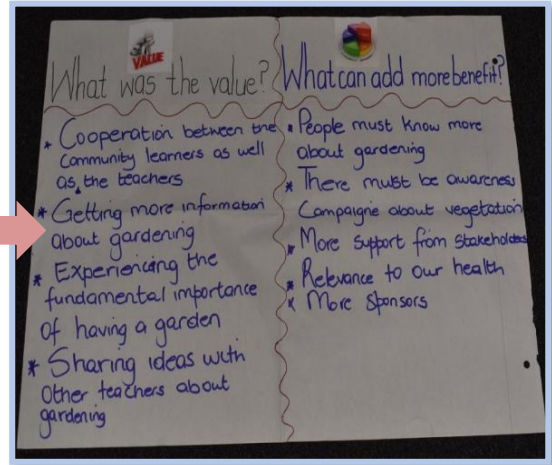 VALUE
What was the value?
* Cooperation between the
Community learners as well
as the teachers
* Getting more information
about gardening
* Experiencing the
fundamental importance
of having a garden
* Sharing ideas with
Other teachers about
gardening
What can add more benefit?
* People must know more
about gardening
* There must be awareness
Campaigne about vegetation
* More support from stakeholders
* Relevance to our health
* More Sponsors